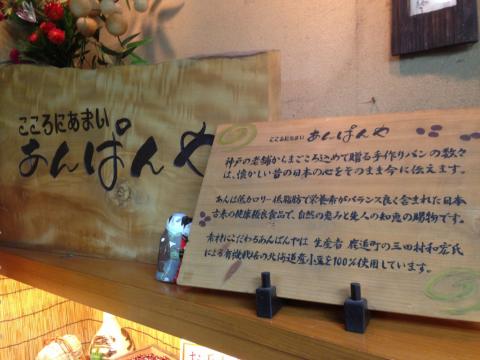 こころにあまい
あんぱんや
こころにあまい あんぱんや
神戸の老舗からまごころ込めて贈る手作りパンの数々
は、懐かしい昔の日本の心をそのまま今に伝えます。
あんは低カロリー低脂肪で栄養素がバランス良く含まれた日本
古来の健康優良食品で、自然の恵みと先人の知恵の賜物です。
素材にこだわるあんぱんやは 生産者 鹿追町の三田村和宏氏
による有機栽培の北海道産小豆を100%使用しています。